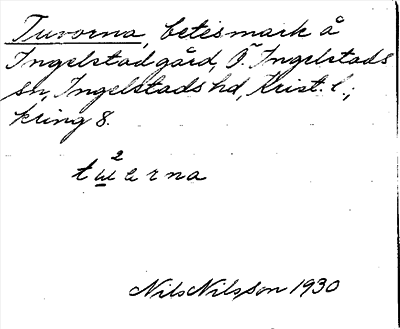 Tuvorna, betesmark å
Ingelstad gård, Ö. Ingelstads
sn, Ingelstads hd, Krist. l.;
kring 8.
2
tɯ̲erna
Nils Nilsson 1930